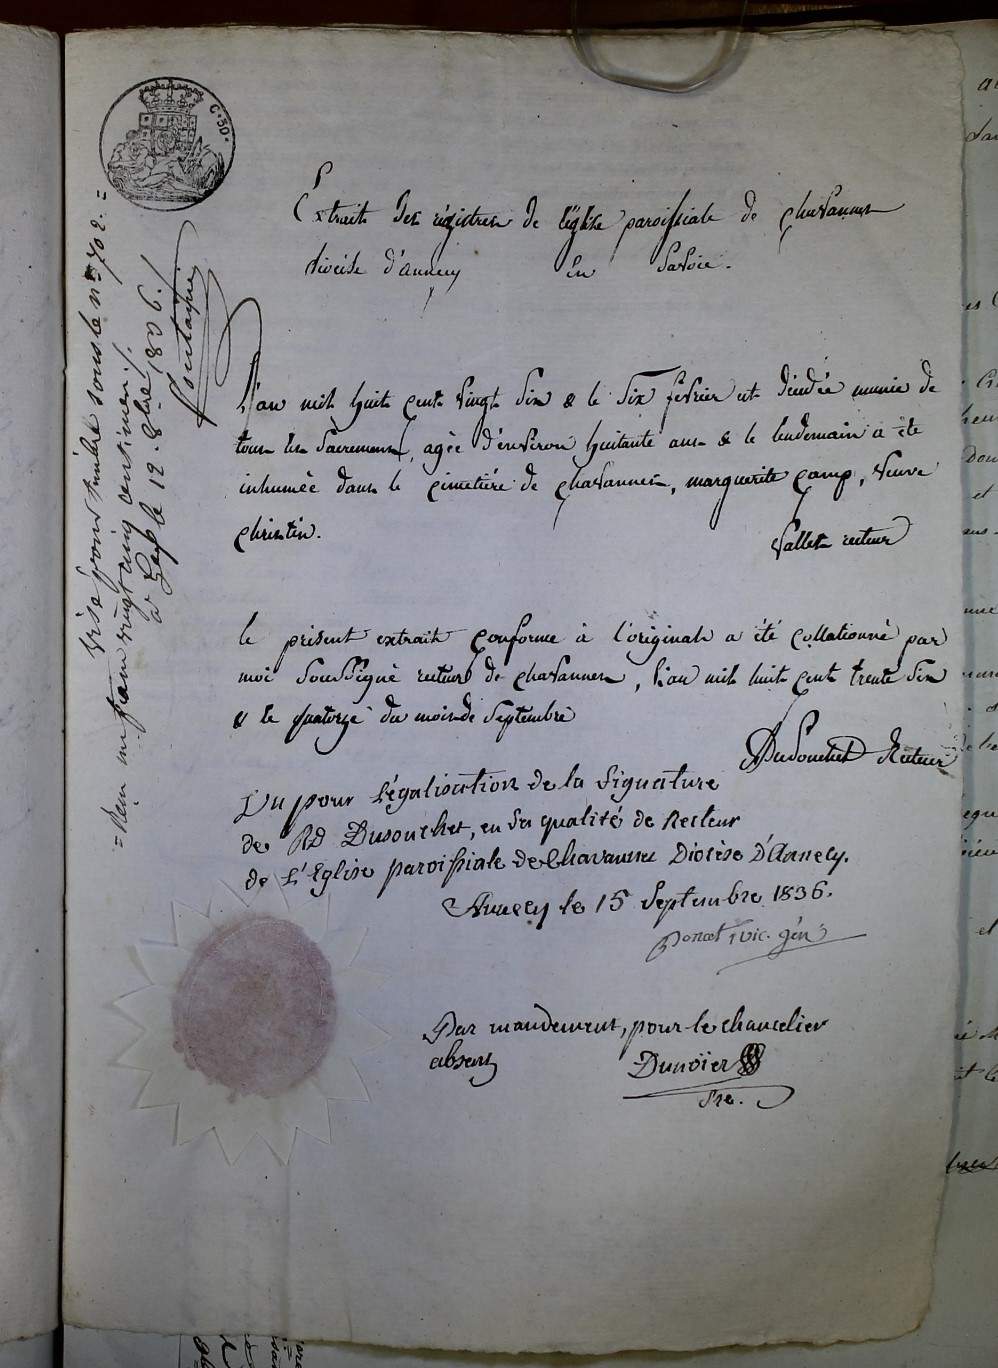 C. 50.
Extrait des régistres de l'église paroissiale de Chavannes
diocèse d'annecy en Savoie.
L'an mil huit cent vingt six & le six fevrier est décédée munie de
tous les Sacremens, agée d'environ huitante ans & le lendemain a été
inhumée dans le cimetière de Chavannes, marguerite Camp, veuve
Christin.
Vallet recteur
le présent extrait conforme à l'original a été collationné par
moi soussigné recteur de Chavannes, l'an mil huit cent trente six
& le quatorze du mois de Septembre
Dusonchet Recteur
Vu pour Légalisation de la Signature
de RD Dusonchet, en sa qualité de Recteur
de L'Eglise paroissiale de Chavannes Diocèse D'Annecy.
Annecy le 15 Septembre 1836.
Poncet, vic. gén
Par mandement, pour le chancelier
absent
Dunoier
Sre.
Visé pour timbre sous le n° 702. =
= Reçu un franc vingt cinq centimes./.
à Gex le 12. 8bre 1836./